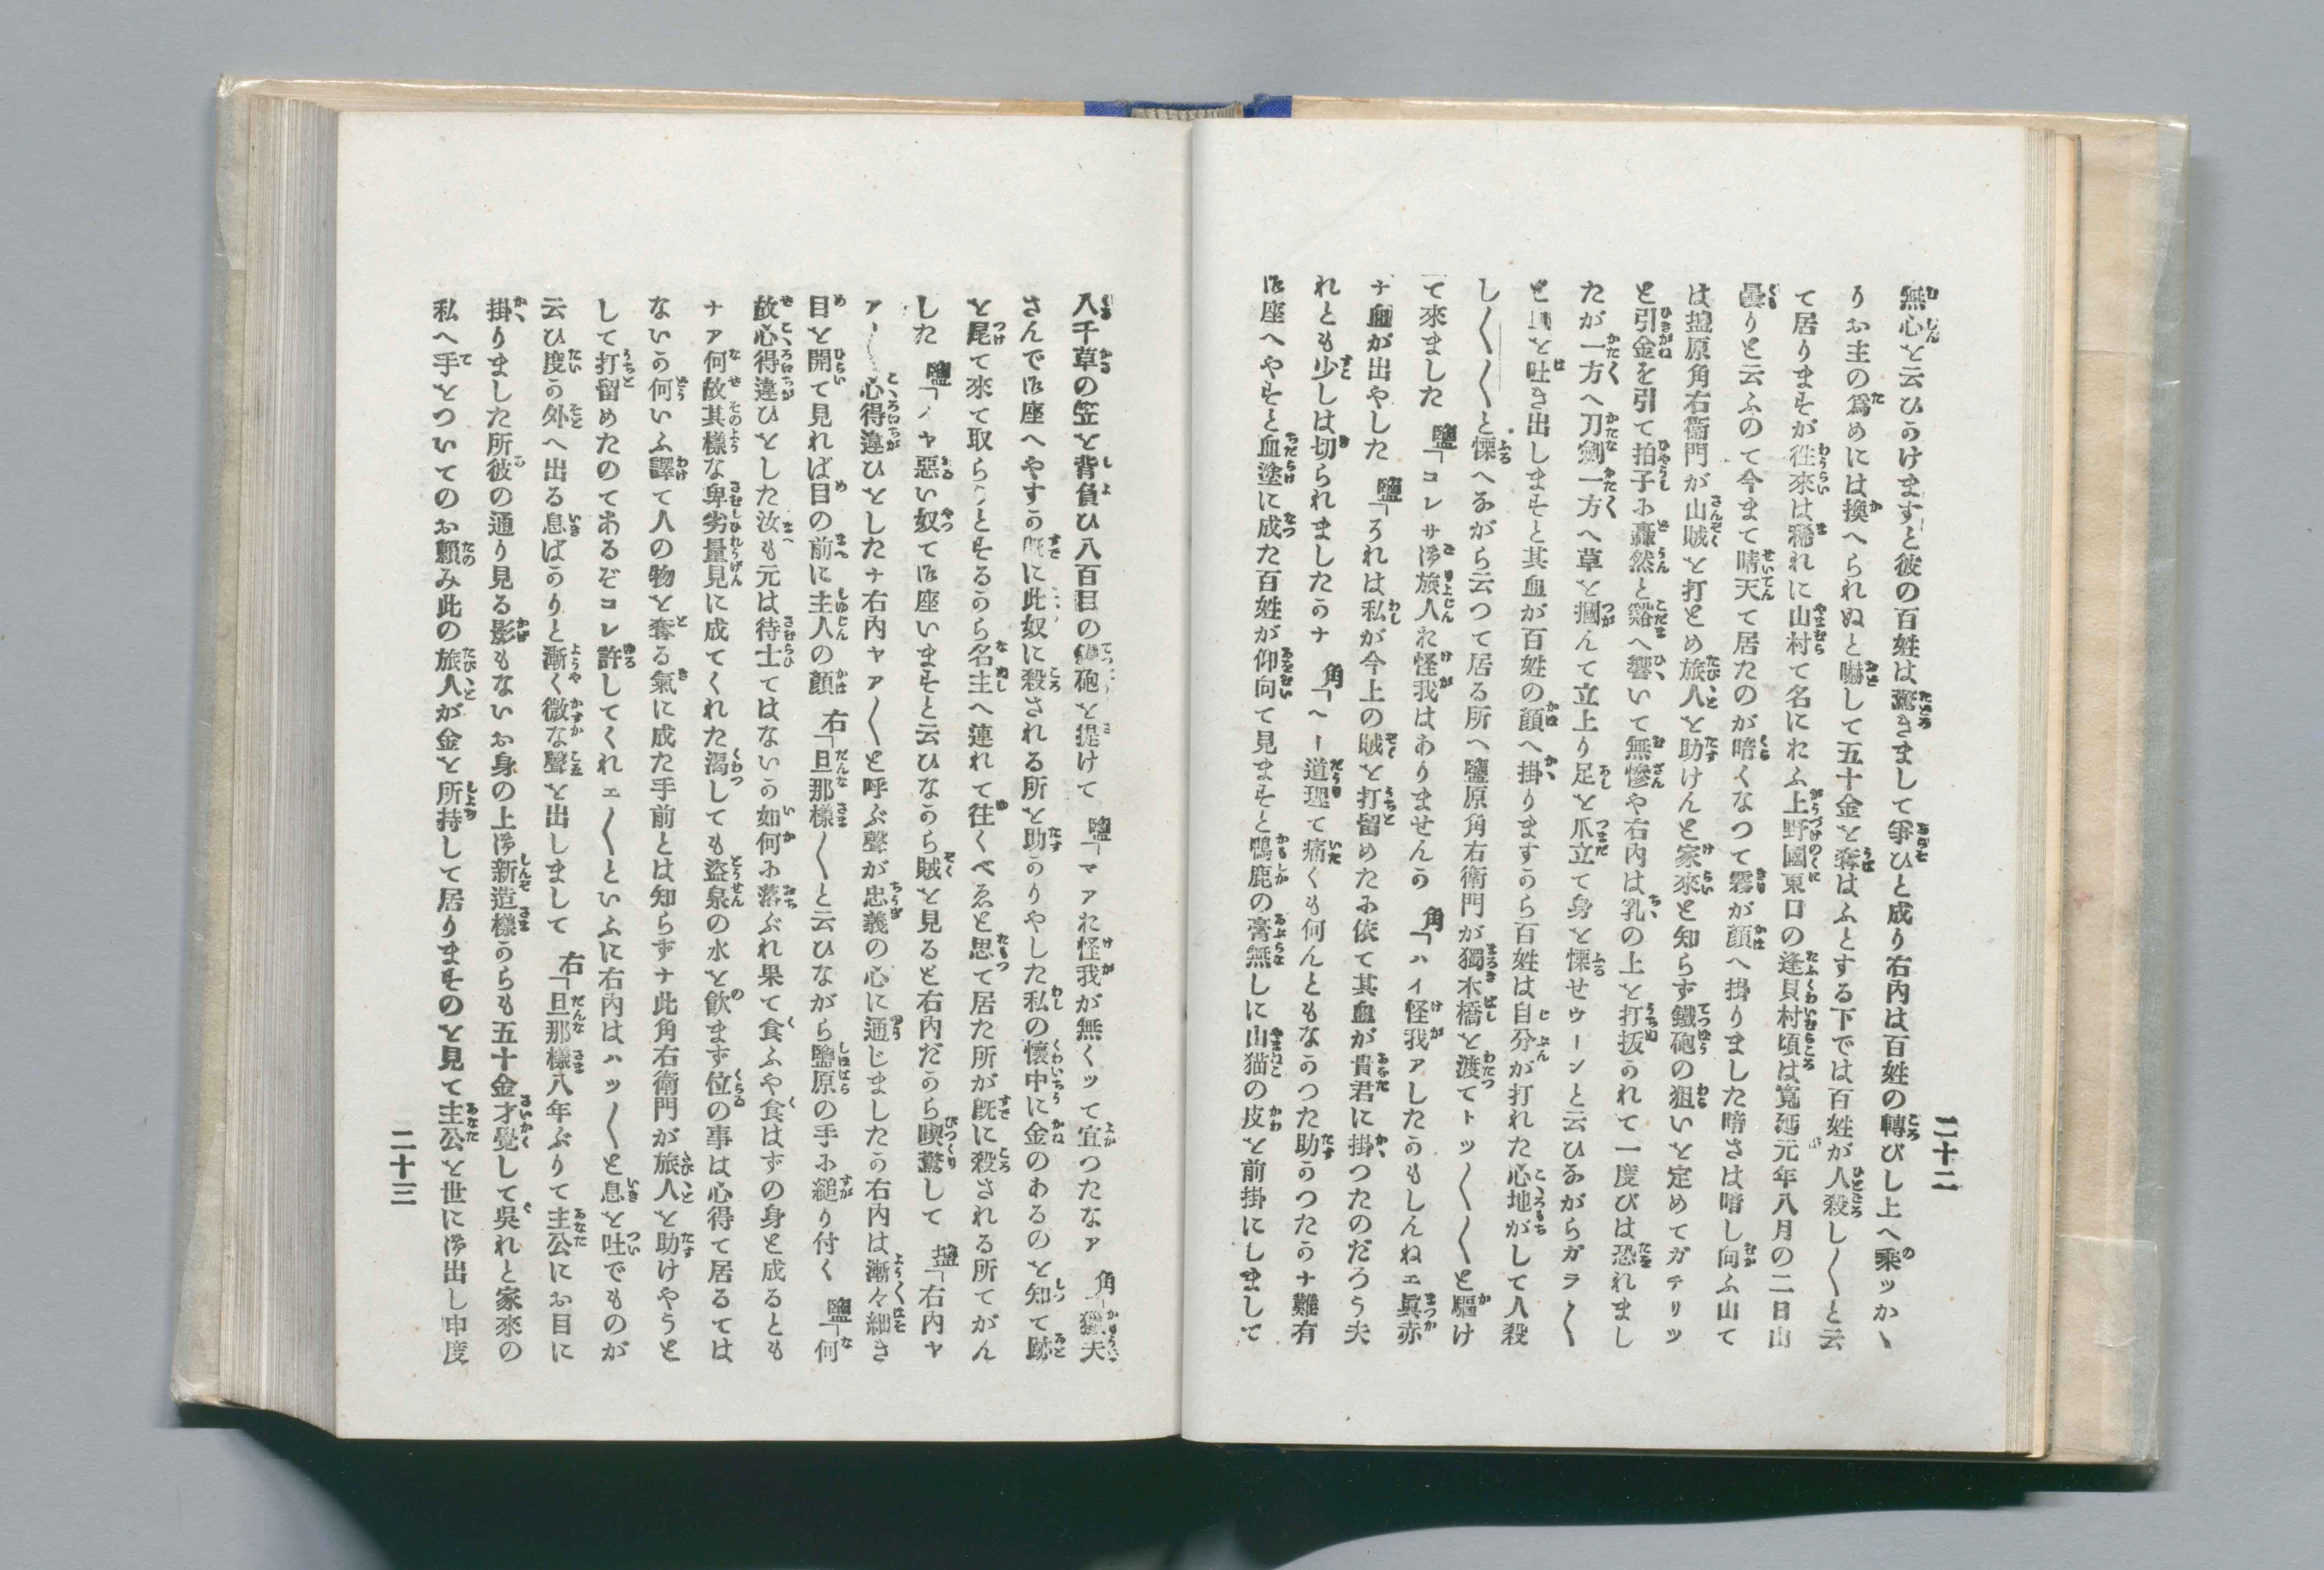 二十二
無心と云ひかけますと彼の百姓は驚きまして爭ひと成り右内は百姓の轉びし上へ乘ッかゝ
りお主の爲めには換へられぬと嚇して五十金と奪はふとする下では百姓が人殺し〳〵と云
て居りますが徃來は稀れに山村て名にれふ上野國東口の逢貝村頃は寛延元年八月の二日山
曇りと云ふので今まて晴天て居たのが暗くなつて霧が顔へ掛りました暗さは暗し向ふ山て
は塩原角右衞門が山賊と打とめ旅人と助けんと家來と知らず鐵砲の狙いと定めてガチリッ
と引金を引て拍子に轟然と谿へ響いて無慘や右内は乳の上と打抜かれて一度びは恐れまし
たが一方へ刀劍一方へ草と摑んて立上り足と爪立て身と慄せウーンと云ひながらガラ〳〵
と血と吐き出しますと其血が百姓の顔へ掛りますから百姓は自分が打れた心地がして人殺
し〳〵〳〵と慄へながら云つて居る所へ鹽原角右衞門が獨木橋と渡てトッ〳〵〳〵と驅け
て來ました　鹽「コレサ御旅人れ怪我はありませんか　角「ハイ怪我アしたかもしんねエ眞赤
ナ血が出やした　鹽「ろれは私が今上の賊と打留めたに依て其血が貴君に掛つたのだろう夫
れとも少しは切られましたかナ　角「ヘー道理て痛くも何んともなかつた助かつたかナ難有
御座へやすと血塗に成た百姓が仰向て見ますと鴨鹿の膏無しに山猫の皮と前掛にしまして
八千草の笠と背負ひ八百目の鐵砲と提けて　鹽「マアれ怪我が無くッて宜つたなア　角「獵夫
さんで御座へやすか既に此奴に殺される所と助かりやした私の懷中に金のあるのと知て跡
と尾て來て取らうとするから名主へ連れて徃くべゑと思て居た所が既に殺される所てがん
した　鹽「イヤ惡い奴て御座いますと云ひながら賊と見ると右内だから喫驚して　塩「右内ヤ
アー〳〵心得違ひとしたナ右内ヤアー〳〵と呼ぶ聲が忠義の心に通じましたか右内は漸々細き
目と開て見れば目の前に主人の顔　右「旦那樣〳〵と云ひながら鹽原の手に縋り付く　鹽「何
故心得違ひとした汝も元は待士てはないか如何に落ぶれ果て食ふや食はずの身と成るとも
ナア何故其樣な卑劣量見に成てくれた渴しても盜泉の水と飮まず位の事は心得て居るては
ないか何いふ譯て人の物と奪る氣に成た手前とは知らずナ此角右衞門が旅人と助けやうと
して打留めたのてあるぞコレ許してくれエ〳〵といふに右内はハッ〳〵と息と吐でものが
云ひ度か外へ出る息ばかりと漸く微な聲と出しまして　右「旦那樣八年ぶりて主公にお目に
掛りました所彼の通り見る影もないお身の上御新造樣からも五十金才覺して吳れと家來の
私へ手とついてのお賴み此の旅人が金と所持して居りますのと見て主公と世に御出し申度
二十三